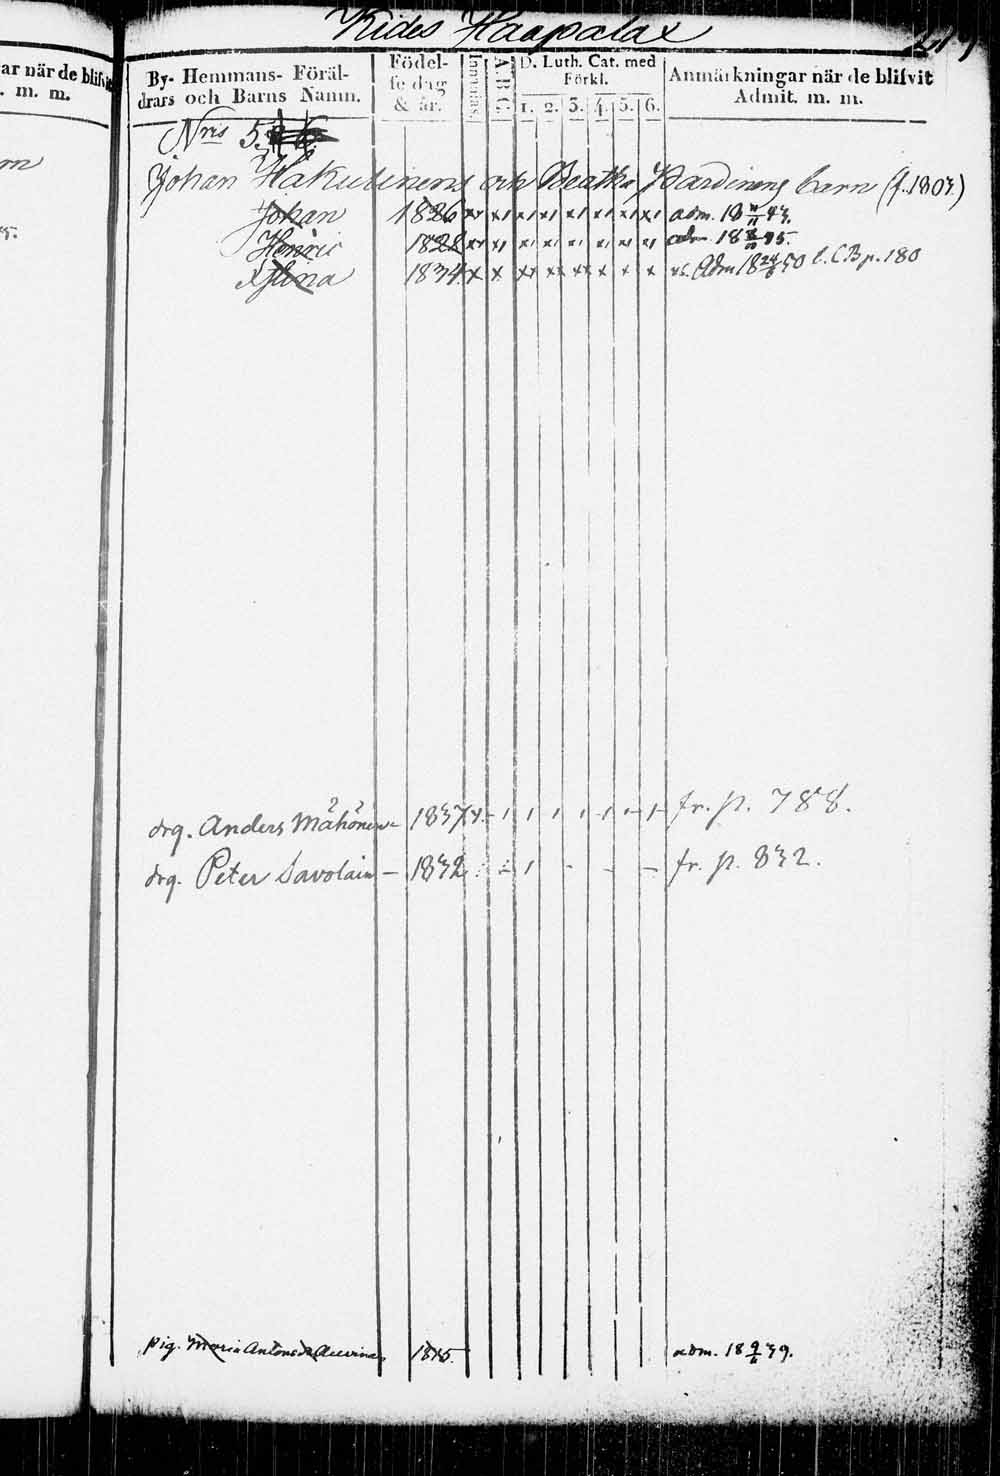 Kides Haapalax
ar när de blifvit
. m. m.
By- Hemmans- Föräl-
drars och Barns Namn.
Födel-
se dag
& år.
Innanläs.
A.B.C.
D. Luth. Cat. med
Förkl.
1. 2. 3. 4. 5. 6.
Anmärkningar när de blifvit
Admit. m. m.
Nris 5
Johan Hakulinens och Beatha Pardinens barn (f. 1803)
Johan 1826 adm. 18 43.
Henric 1828 adm 18 45.
1834 Adm 18 24/6 50 l. CB p. 180
drg. Anders Mähönen 1837 fr. p. 788.
drg. Peter Savolain 1832 fr. p. 832.
pig. Maria Antonsdr 1815. adm. 18 9/6 39.